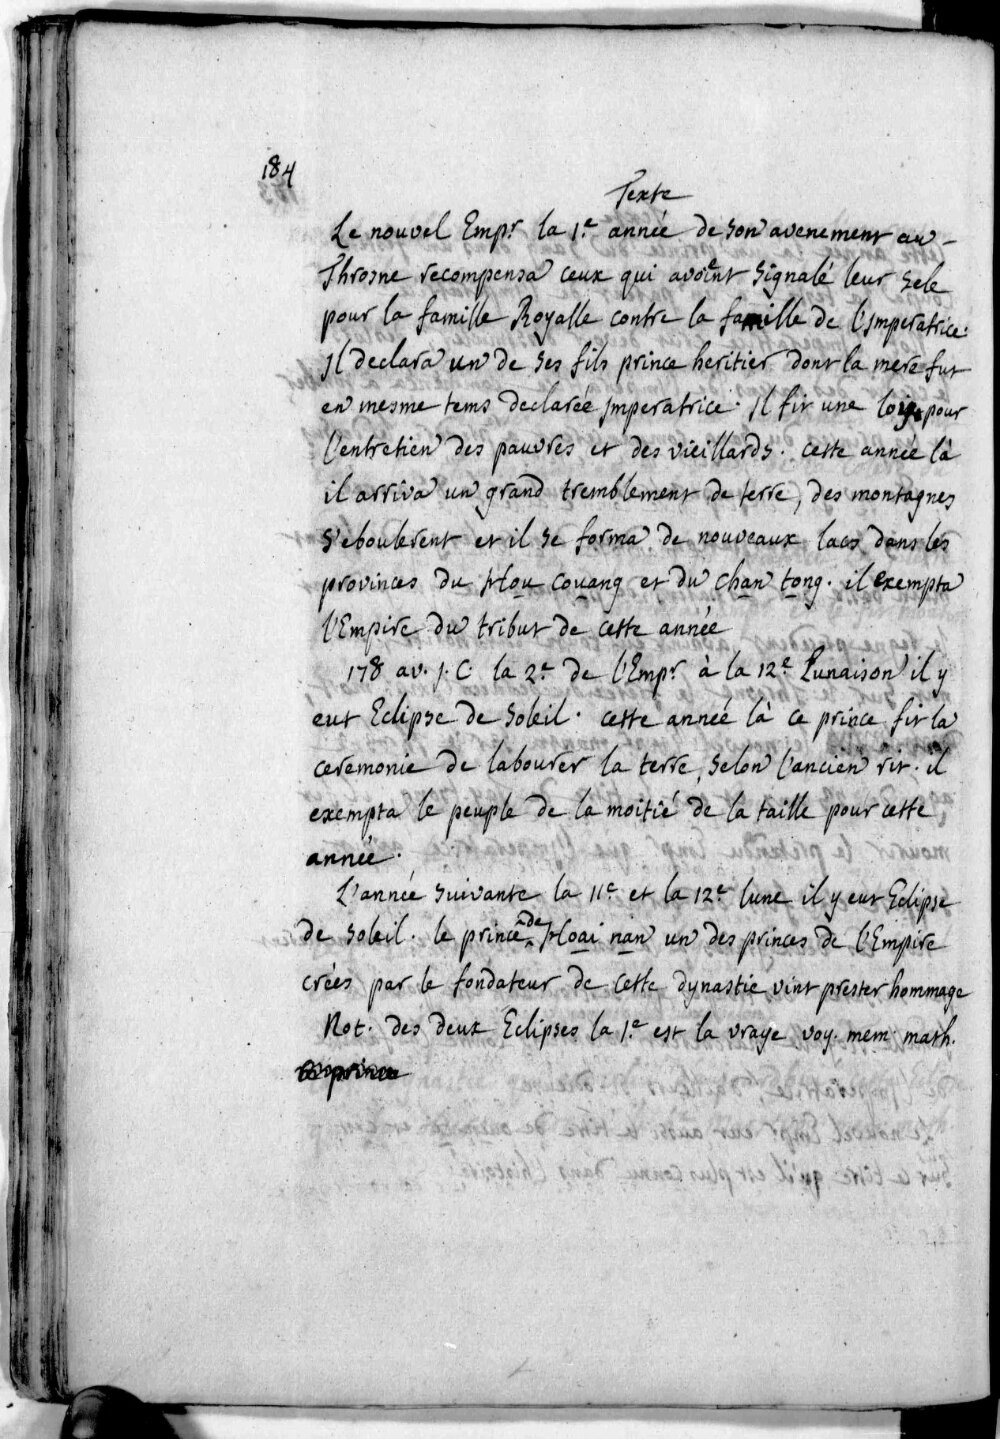 184
Texte
Le nouvel Empr la 1.e année de son avenement au
Throsne recompensa ceux qui avoient signalé leur sele
pour la famille Royalle contre la famille de l'Imperatrice.
Il declara un de ses fils prince heritier dont la mere fut
en mesme tems declarée Imperatrice. Il fit une loy pour
l'entretien des pauvres et des vieillards. cette année là
il arriva un grand tremblement de terre, des montagnes
s'eboulerent et il se forma de nouveaux lacs dans les
provinces du Hou Couang et du Chan tong. il exempta
l'Empire du tribut de cette année
178 av. J. C la 2.e de l'Empr à la 12.e Lunaison il y
eut Eclipse de Soleil. cette année là ce prince fit la
ceremonie de labourer la terre, selon l'ancien rit. il
exempta le peuple de la moitié de la taille pour cette
année.
L'année suivante la 11.e et la 12.e lune il y eut Eclipse
de Soleil. le prince de Hoai nan un des princes de l'Empire
créés par le fondateur de cette dynastie vint prester hommage
Not. des deux Eclipses la 1.e est la vraye voy. mem. math.